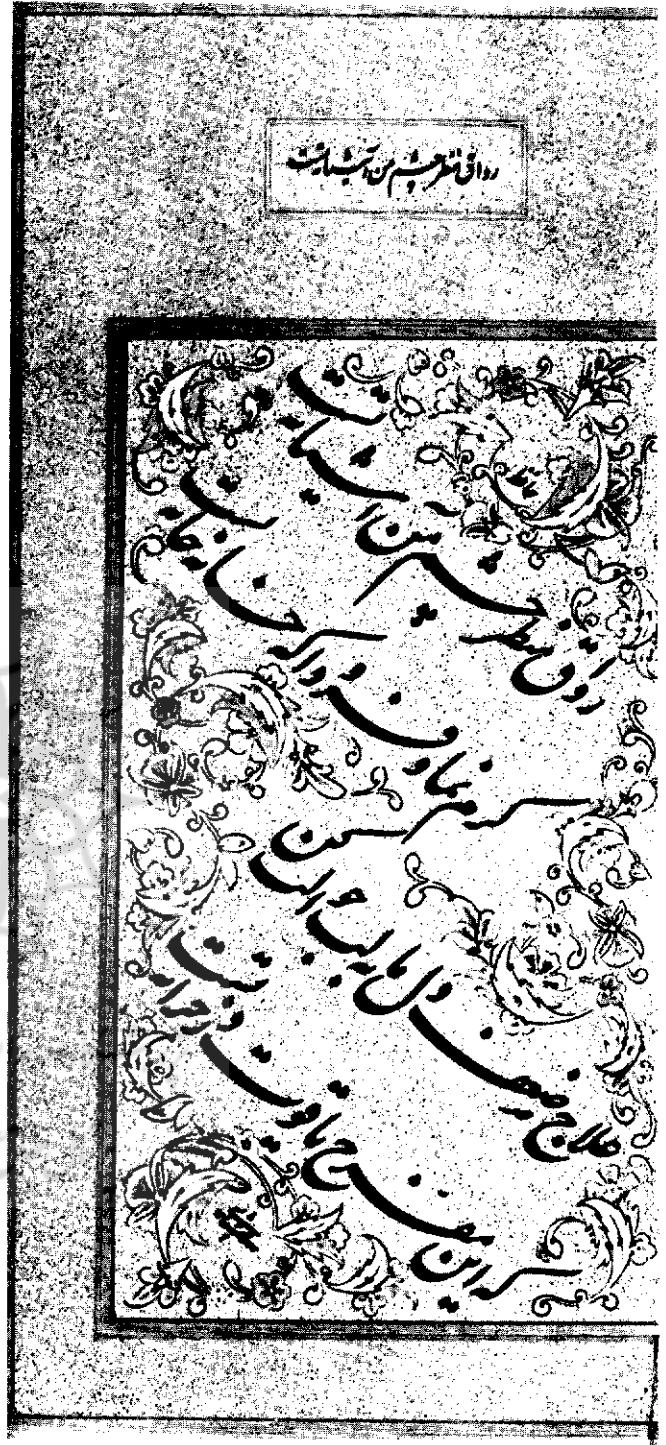 رواق منظر چشم من آشیانهٔ تست
رواق منظر چشم من آشیانهٔ تست
کرم نما و فرود آ که خانه خانهٔ تست
علاج ضعف دل ما بلب حوالت کن
که این مفرح یاقوت در خزانهٔ تست